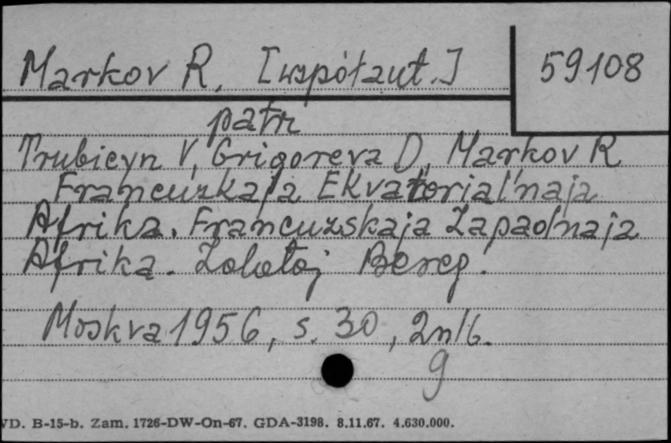 Markov R. [współaut.]
59108
patrz
Trubicyn V, Grigoreva D, Markov R
Francuzkaja Ekvatorial'naja
Afrika. Francuzskaja Zapadnaja
Afrika. Zolotoj Bereg.
Moskva 1956, s. 30, 2nlb.
9
VD. B-15-b. Zam. 1726-DW-On-67. GDA-3198. 8.11.67. 4.630.000.